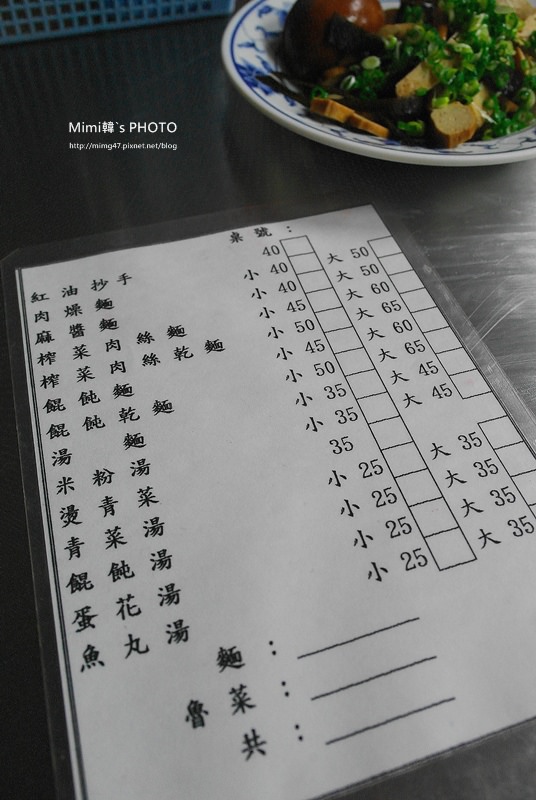 Mimi韓`s PHOTO
http://mimg47.pixnet.net/blog
桌號：
紅油抄手 40
肉燥麵 小 40 大 50
麻醬麵 小 40 大 50
榨菜肉絲麵 小 45 大 60
榨菜肉絲乾麵 小 50 大 65
餛飩麵 小 45 大 60
餛飩乾麵 小 50 大 65
湯麵 小 35 大 45
米粉湯 小 35 大 45
燙青菜 35
青菜湯 小 25 大 35
餛飩湯 小 25 大 35
蛋花湯 小 25 大 35
魚丸湯 小 25 大 35
麵：
魯菜：
共：